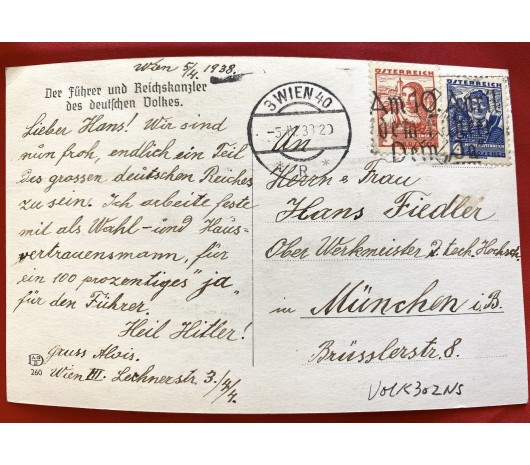 Wien 5/4. 1938.
Der Führer und Reichskanzler
des deutschen Volkes.
Lieber Hans! Wir sind
nun froh, endlich ein Teil
des grossen deutschen Reiches
zu sein. Ich arbeite feste
mit als Wahl- und Haus-
vertrauensmann, für
ein 100 prozentiges "ja"
für den Führer.
Heil Hitler!
Gruss Alois.
Wien III. Lechnerstr. 3./2/4.
260
3 WIEN 40
-5.IV.38 20
ÖSTERREICH
ÖSTERREICH
Am 10. April
dem Führer
Dein
An
Herrn u Frau
Hans Fiedler
Ober Werkmeister d. tech. Hochsch.
in München i. B.
Brüsslerstr. 8.
VOLK302NS